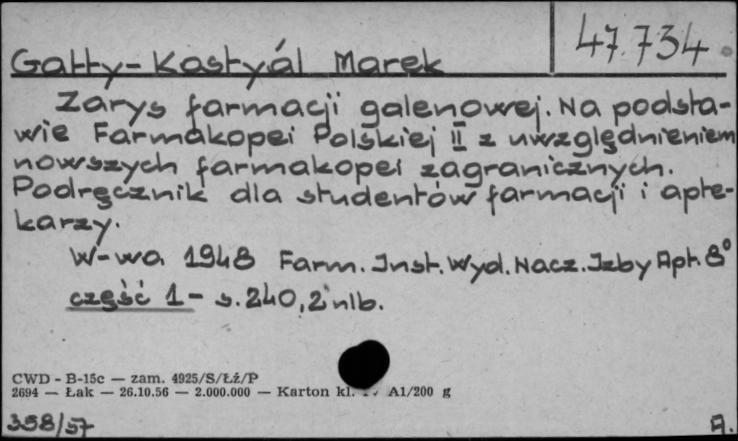 Gatty-Kostyál Marek 47.734
Zarys farmacji galenowej. Na podsta-
wie Farmakopei Polskiej II z uwzględnieniem
nowszych farmakopei zagranicznych.
Podręcznik dla studentów farmacji i apte-
karzy.
W-wa 1948 Farm. Inst. Wyd. Nacz. Izby Apt. 8°
część 1 - s. 240, 2 nlb.
CWD - B-15c — zam. 4925/S/Łź/P
2694 — Łak — 26.10.56 — 2.000.000 — Karton kl. A1/200 g
358/57 A.